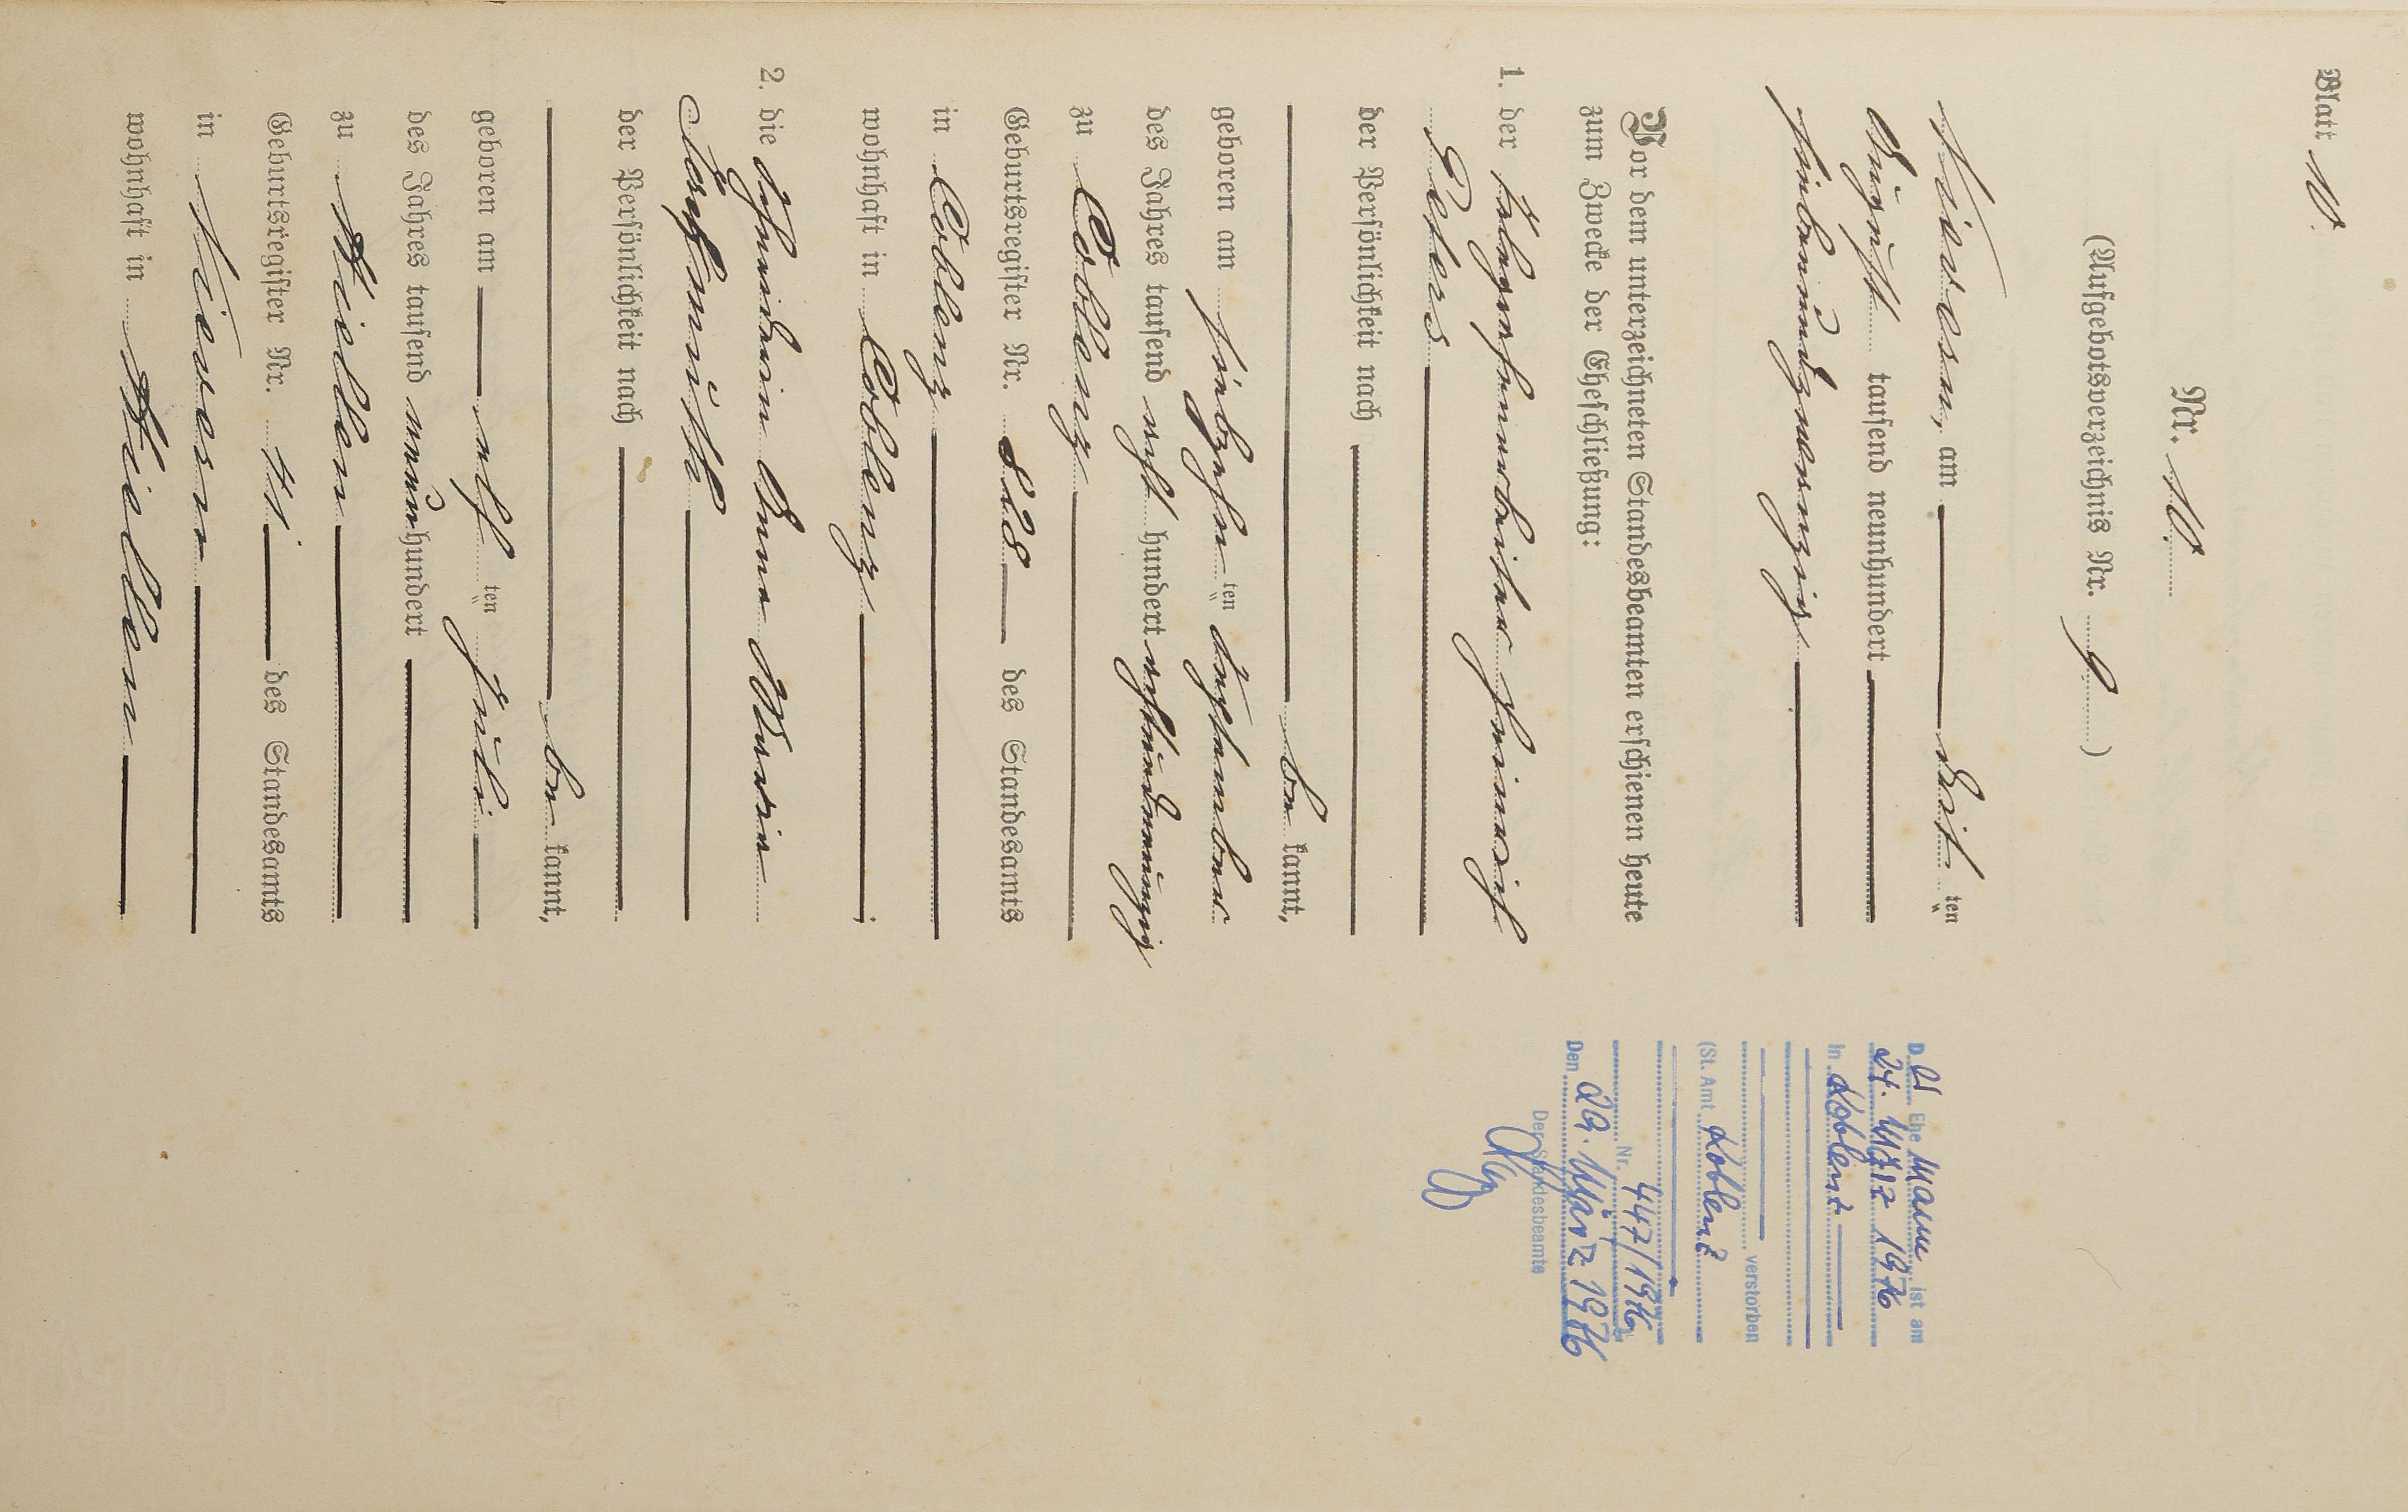 Blatt 10.
Nr. 10.
(Aufgebotsverzeichnis Nr. 9)
Nievern, am drit ten
August tausend neunhundert
siebenundzwanzig
Vor dem unterzeichneten Standesbeamten erschienen heute
zum Zwecke der Eheschließung:
1. der Telegrafenarbeiter Heinrich
Peters
der Persönlichkeit nach
be kannt,
geboren am siebzehn ten September
des Jahres tausend acht hundert achtundneunzig
zu Coblenz
Geburtsregister Nr. 828 des Standesamts
in Coblenz
wohnhaft in Coblenz ;
2. die Schneiderin Anna Maria
der Persönlichkeit nach
be kannt,
geboren am elf ten Juli
des Jahres tausend neun hundert
zu Miellen
Geburtsregister Nr. 41 des Standesamts
in Nievern
wohnhaft in Miellen
D er Ehe mann ist am
24. März 1976
in Koblenz
verstorben
(St. Amt Koblenz
Nr. 447/1976
Den 29. März 1976
Der Standesbeamte